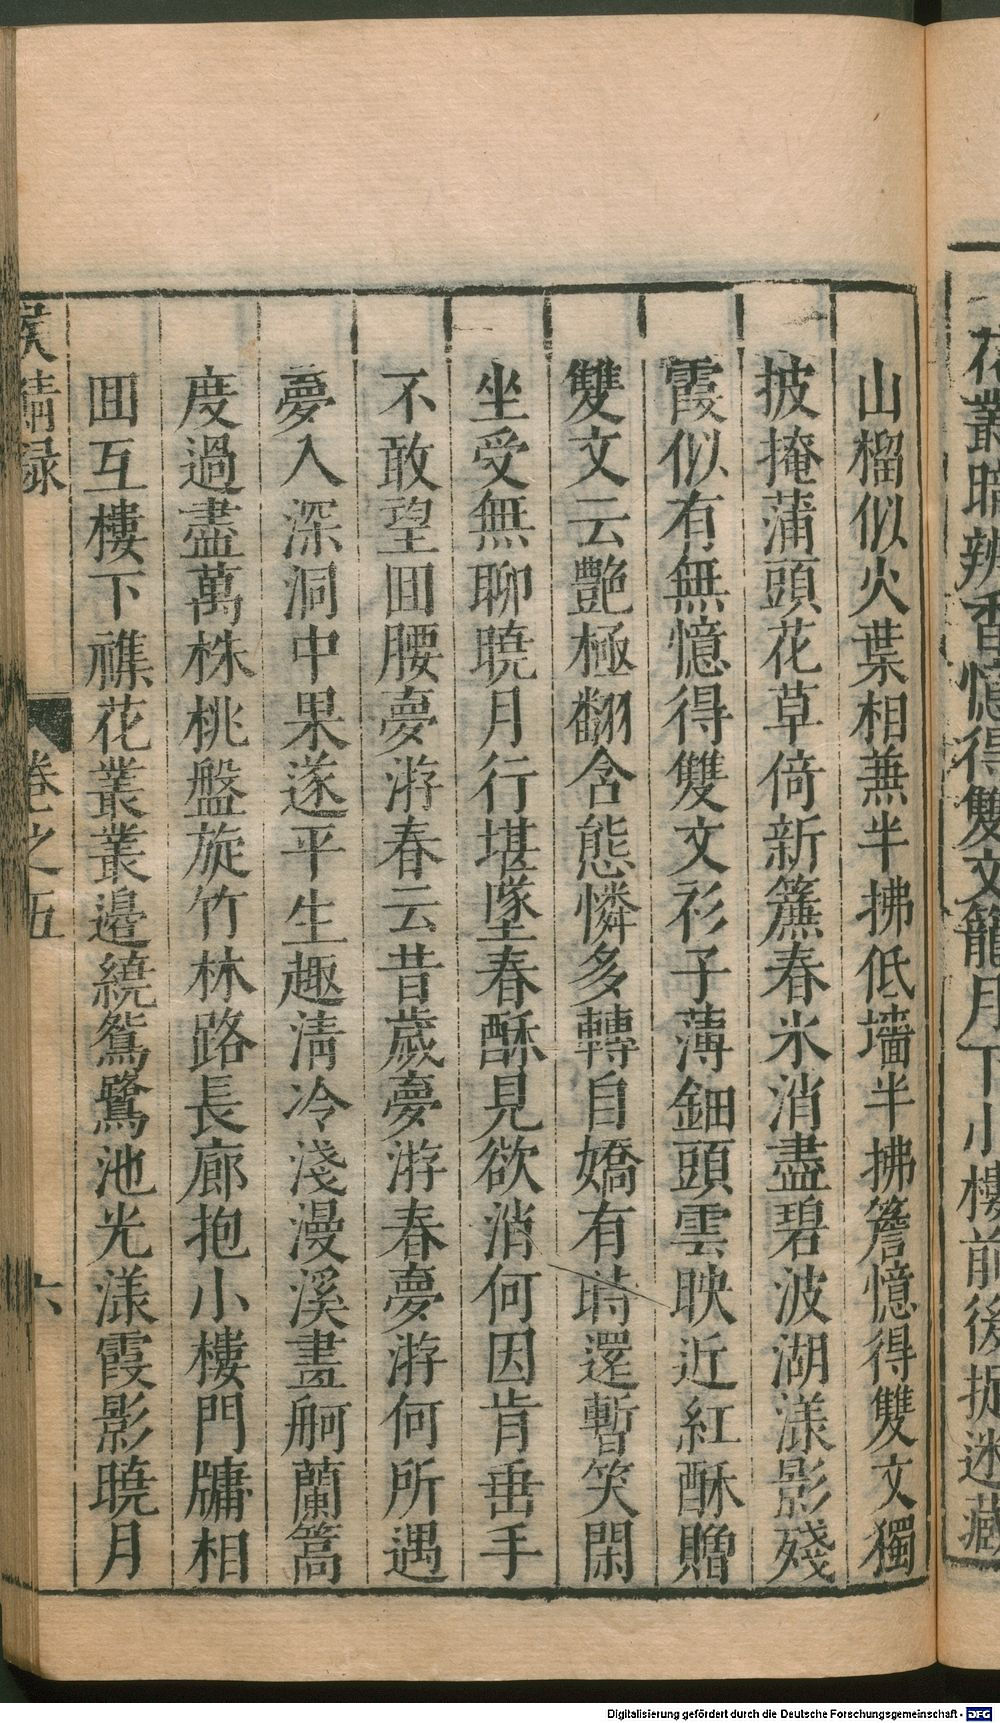 花叢暗辨香憶得雙文籠月下小樓前後捉迷藏
山榴似火葉相兼半拂低墻半拂簷憶得雙文獨
披掩蒲頭花草倚新簾春氷消盡碧波湖漾影殘
霞似有無憶得雙文衫子薄鈿頭雲映近紅酥贈
雙文云艷極翻含態憐多轉自嬌有時還暫笑閑
坐受無聊曉月行堪墜春酥見欲消何因肯垂手
不敢望囬腰夢游春云昔歲夢游春夢游何所遇
夢入深洞中果遂平生趣清冷淺漫溪畫舸蘭篙
度過盡萬株桃盤旋竹林路長廊抱小樓門牖相
囬互樓下襍花叢叢邊繞鴛鷺池光漾霞影曉月
侯鯖録
卷之五
六
Digitalisierung gefördert durch die Deutsche Forschungsgemeinschaft - DFG